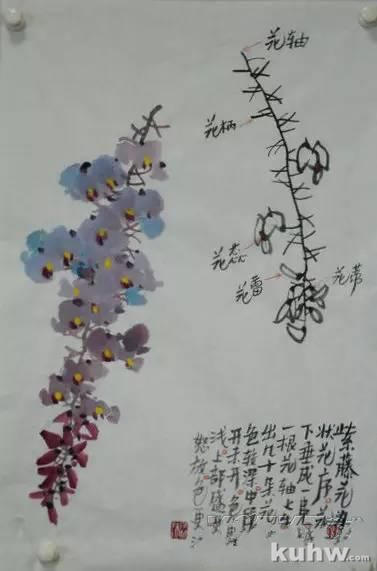 花轴
花柄
花蕊
花蕾
花蒂
紫藤花为
状花序
下垂成一串
一根花轴上生
出几十朵花
色较深中部
开未开色
浅上部盛
怒放色更
kuhw.com